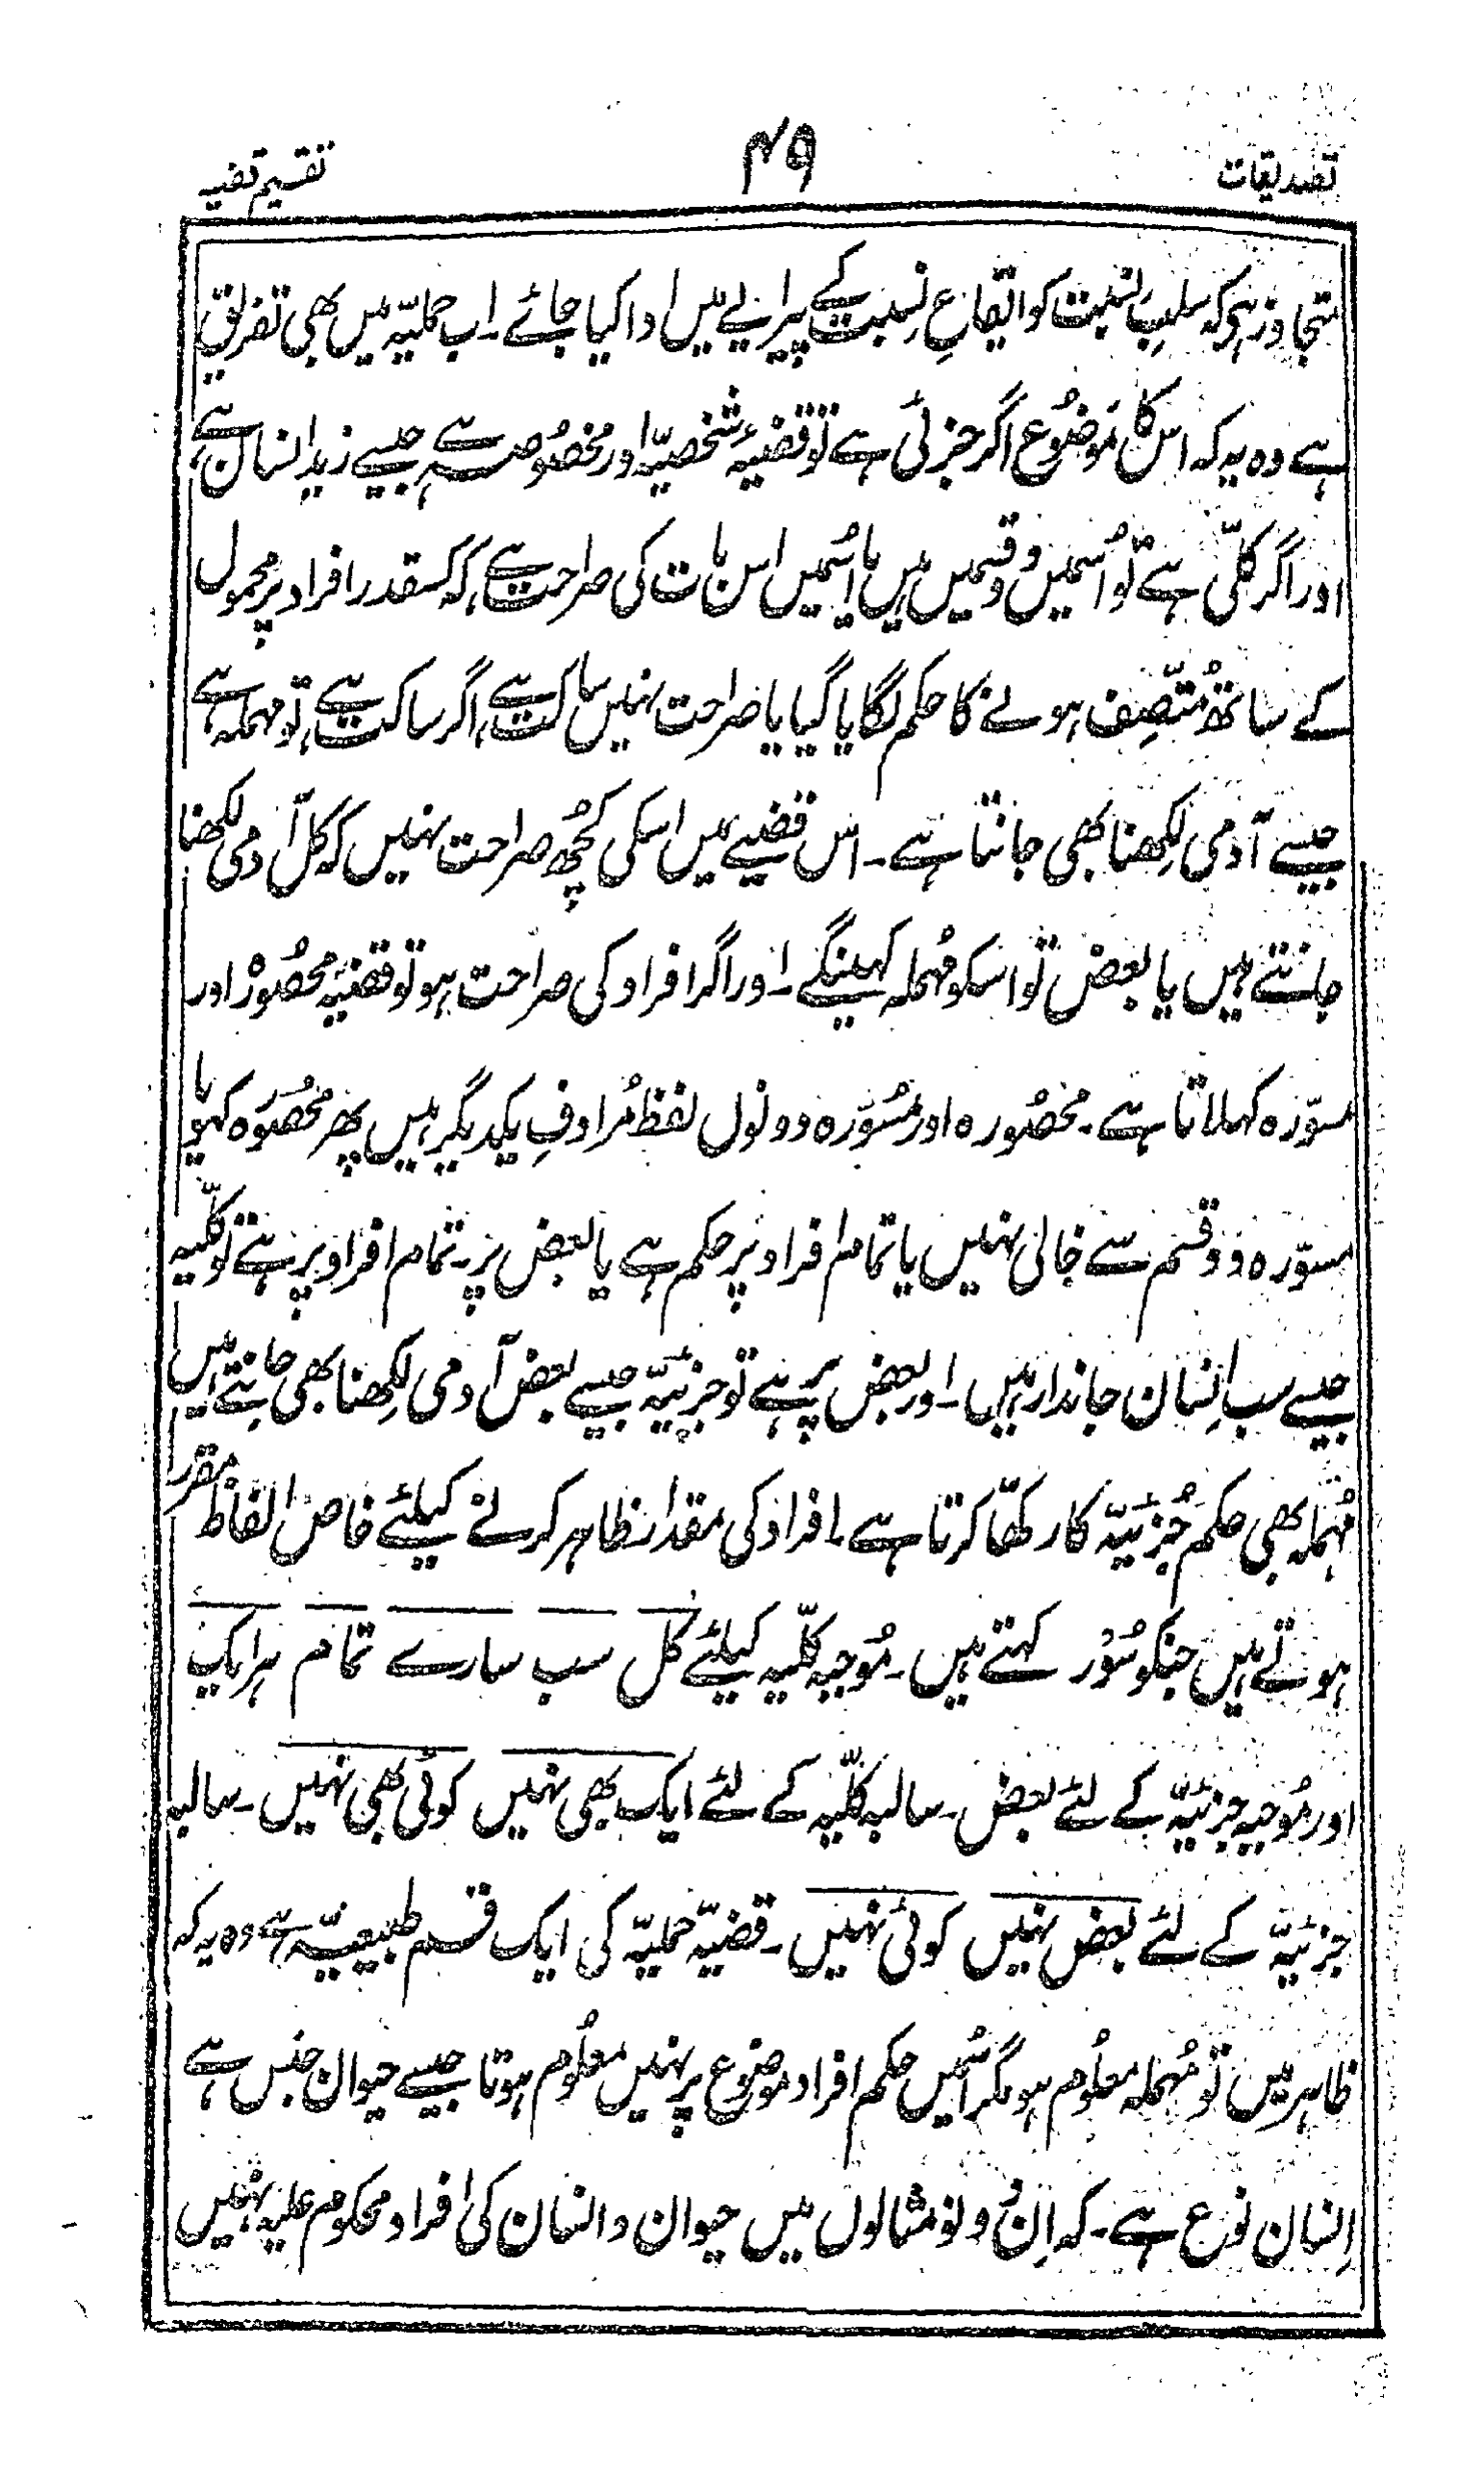 تصدیقات
۴۹
تقسیم قضیہ
تجاوز ہو کہ سلبِ نسبت کو ایقاعِ نسبت کے پیرایے میں ادا کیا جائے۔ اب حملیّہ میں بھی تفریق
ہے وہ یہ کہ اس کا مَوضُوع اگر جزئی ہے تو قضیۂ شخصیّہ اور مخصُوصہ ہے جیسے زید انسان ہے
اور اگر کلّی ہے تو اُسمیں دو قسمیں ہیں یا اُسمیں اس بات کی صراحت ہے کہ کسقدر افراد پر محمول
کے ساتھ مُتّصِف ہونے کا حکم لگایا گیا یا صراحت نہیں ساکت ہے، اگر ساکت ہے تو مہملہ ہے
جیسے آدمی لِکھنا بھی جانتا ہے۔ اس قضیے میں اسکی کُچھ صراحت نہیں کہ کل آدمی لکھنا
جانتے ہیں یا بعض تو اسکو مُہملہ کہینگے۔ اور اگر افراد کی صراحت ہو تو قضیۂ محصُورہ اور
مسوّرہ کہلاتا ہے۔ محصُورہ اور مسُوّرہ دونوں لفظ مُرادفِ یکدیگر ہیں پھر محصُورَہ کہو یا
مسوّرہ دو قسم سے خالی نہیں یا تمام افراد پر حکم ہے یا بعض پر۔ تمام افراد پر ہے تو کلّیہ
جیسے سب اِنسان جاندار ہیں۔ اور بعض پر ہے تو جزئیّہ جیسے بعض آدمی لِکھنا بھی جانتے ہیں
مُہملہ بھی حکم جُزئیّہ کا رکھّا کرتا ہے۔ افراد کی مقدار ظاہر کرنے کیلئے خاص الفاظ مقرر
ہوتے ہیں جنکو سُوْر کہتے ہیں۔ مُوجبہ کلّیہ کیلئے کل سب سارے تمام ہر ایک
اور مُوجبہ جزئیّہ کے لئے بعض۔ سالبہ کلّیہ کے لئے ایک بھی نہیں کوئی بھی نہیں۔ سالبہ
جزئیّہ کے لئے بعض نہیں کوئی نہیں۔ قضیّہ حملیّہ کی ایک قسم طبیعیّہ ہے وہ یہ کہ
ظاہر میں تو مُہملہ معلُوم ہو مگر اسُمیں حکم افراد موضوع پر نہیں معلُوم ہوتا جیسے حیوان جنس ہے
اِنسان نوع ہے۔ کہ اِن دونو مثالوں میں حیوان و انسان کی افراد محکوم علیہ نہیں